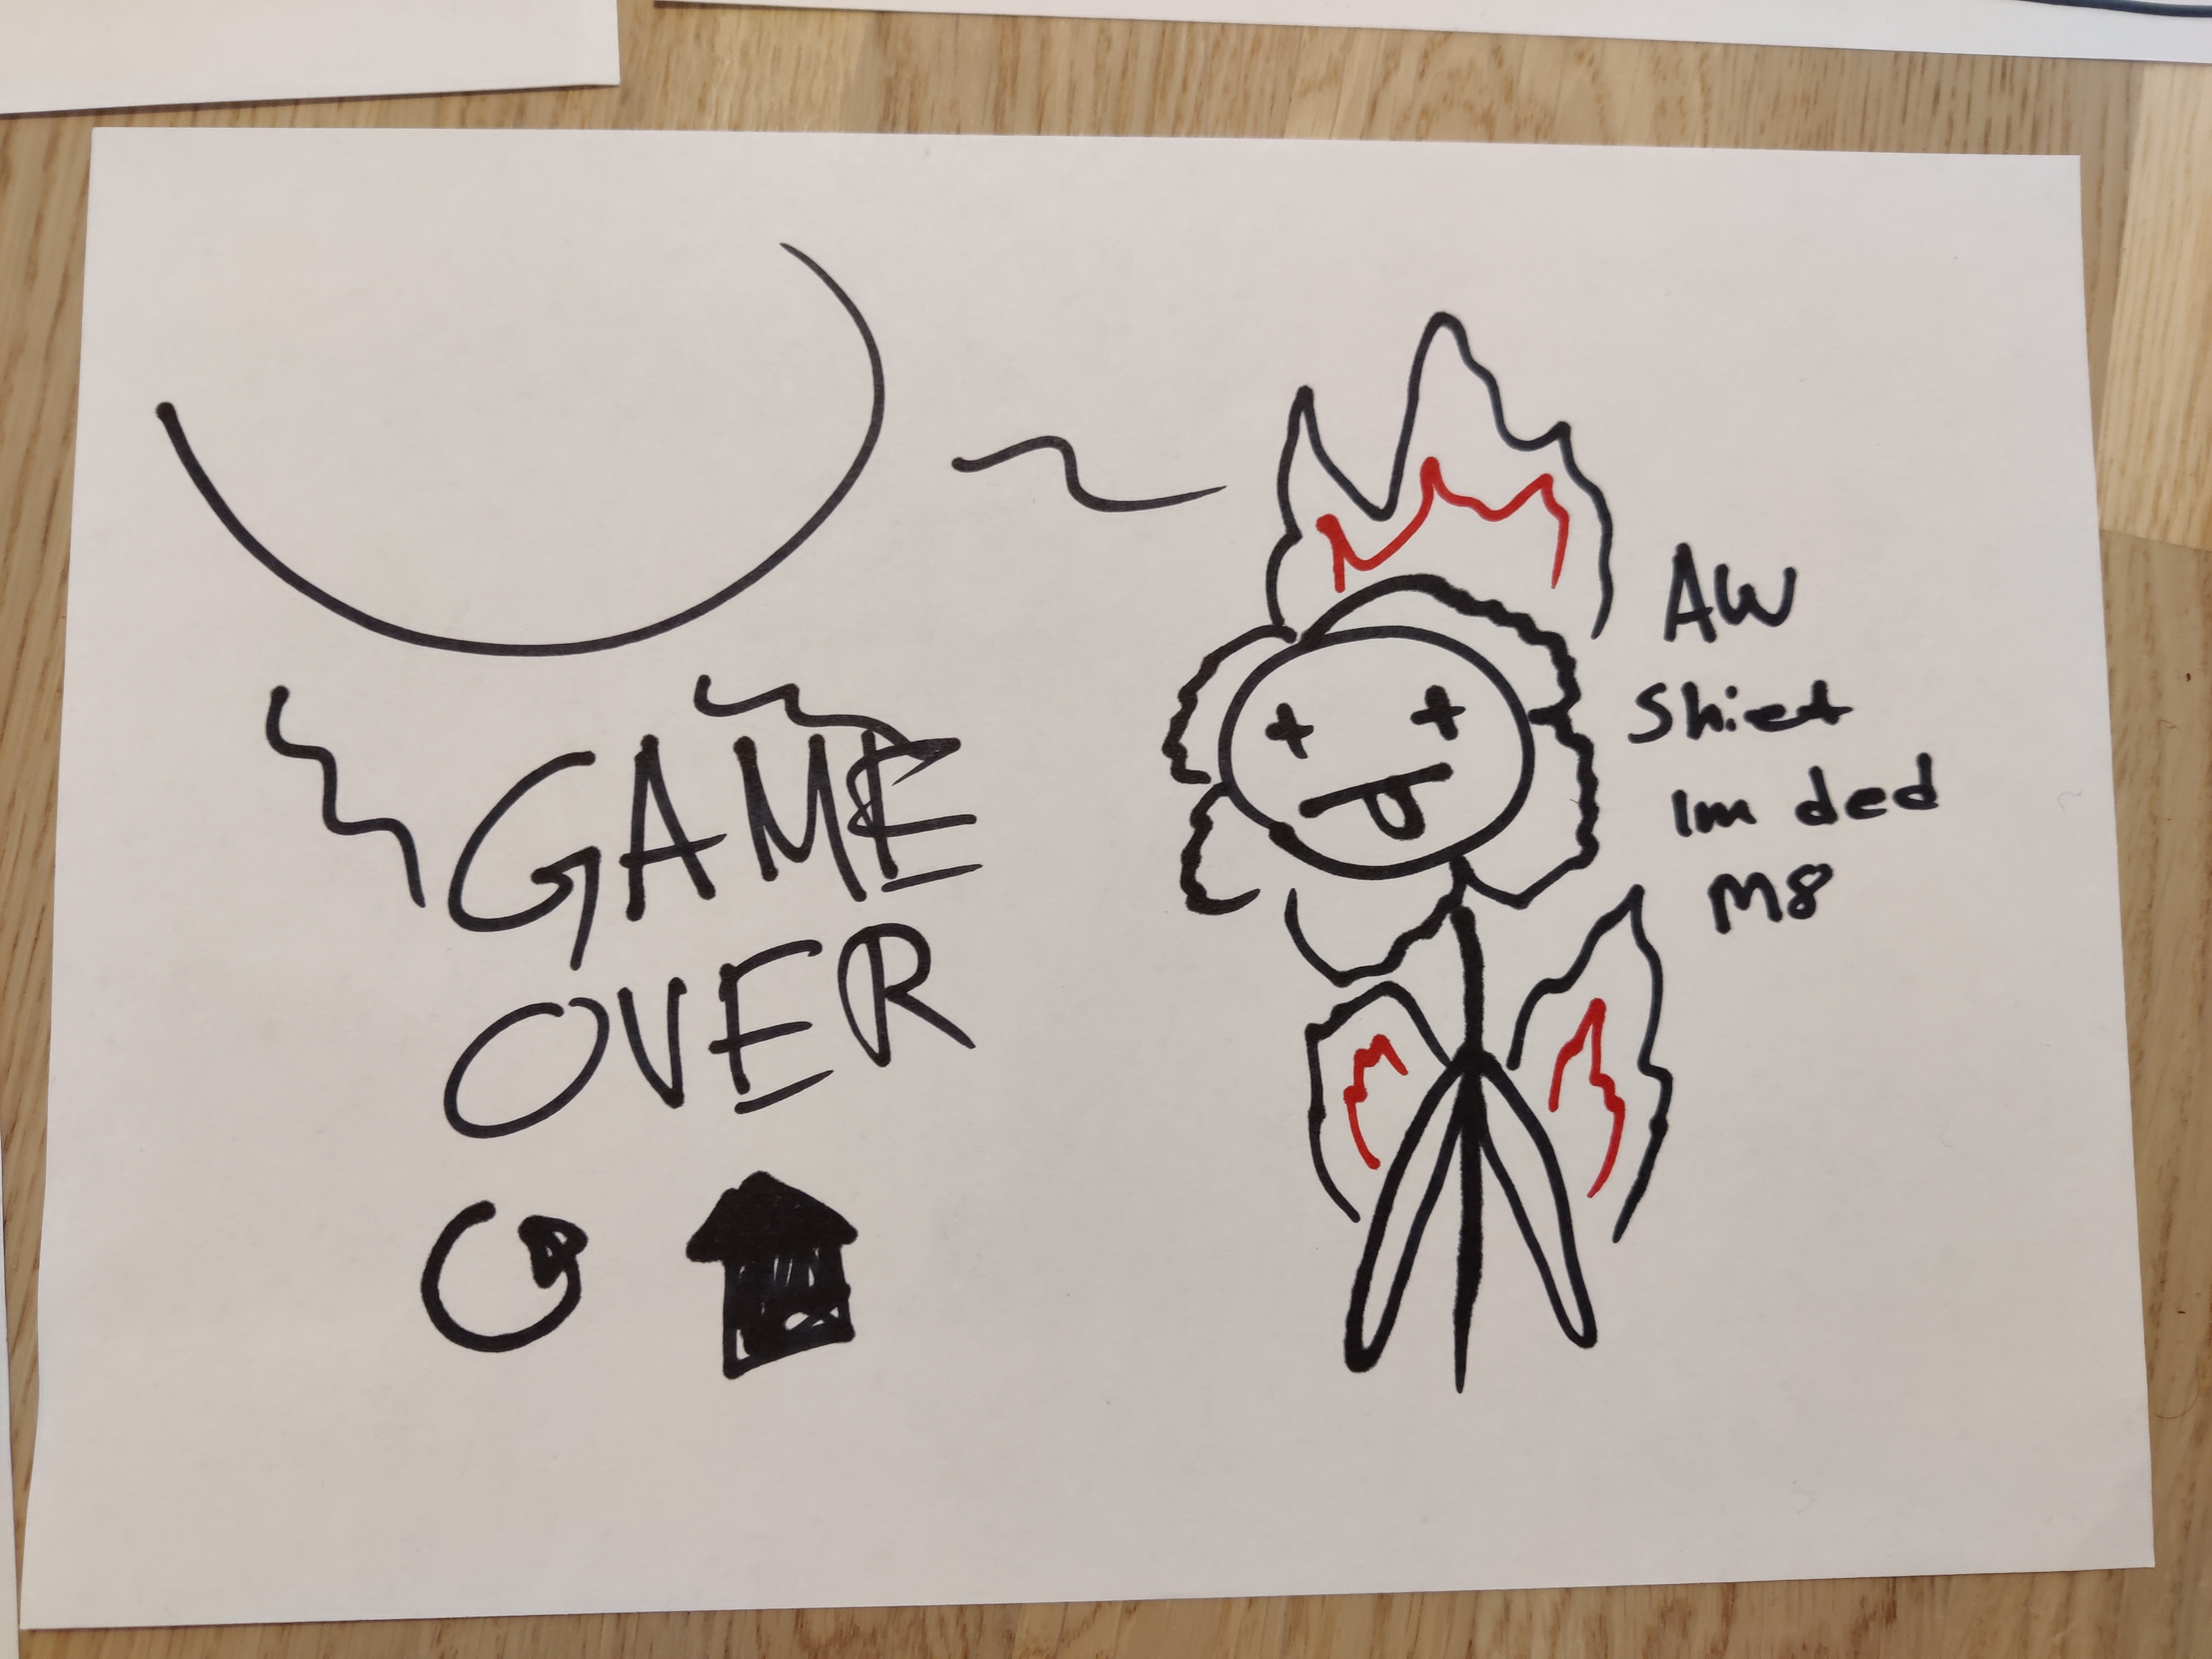 GAME
OVER
AW
Shiet
Im ded
M8